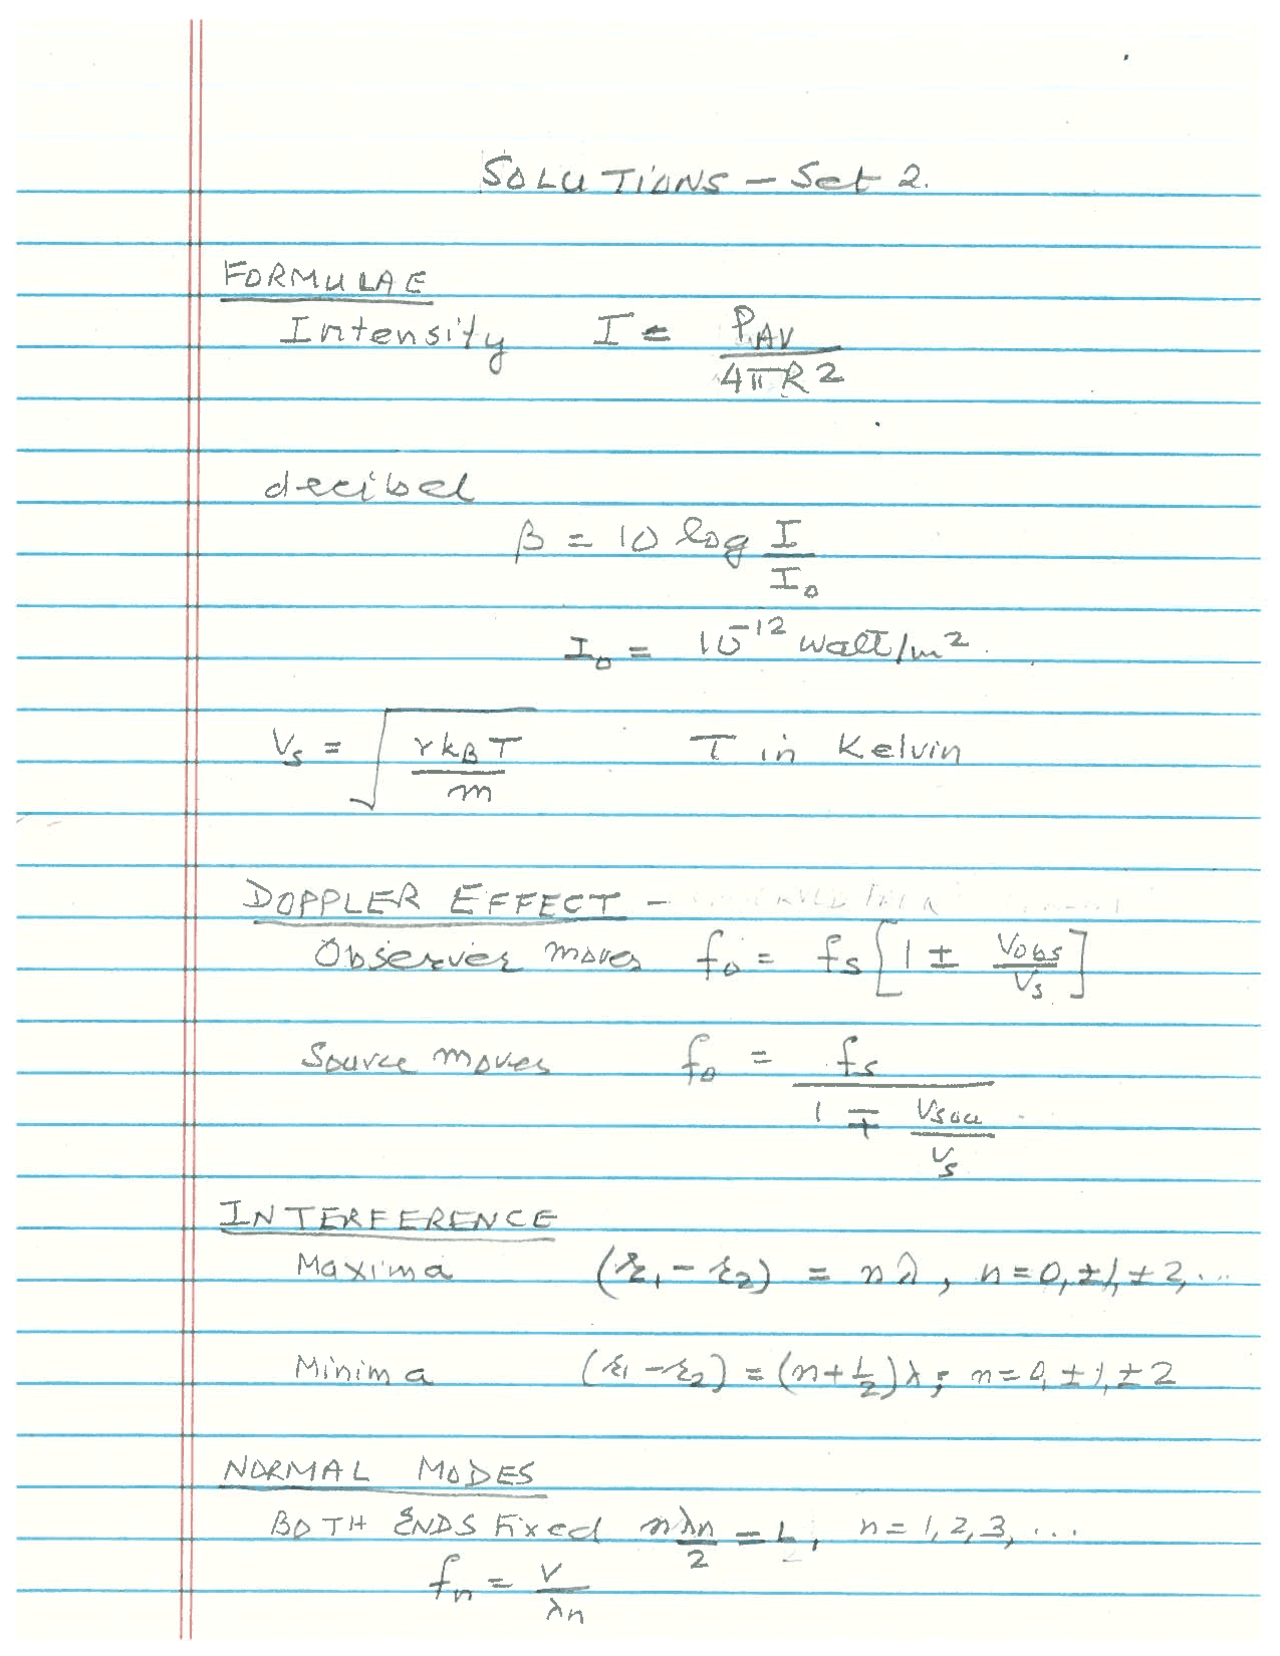 SOLUTIONS - Set 2.
FORMULAE
Intensity I = P_AV / 4πR2
decibel
β = 10 log I / I₀
I₀ = 10⁻¹² watt/m².
V_s = √(γk_B T / m) T in Kelvin
DOPPLER EFFECT -
Observer moves f₀ = f_s [1 ± V_obs / V_s]
Source moves f₀ = f_s / (1 ∓ V_sou / V_s)
INTERFERENCE
Maxima (r₁ - r₂) = nλ, n = 0, ±1, ±2, ...
Minima (r₁ - r₂) = (n + 1/2)λ; n = 0, ±1, ±2
NORMAL MODES
BOTH ENDS Fixed nλn / 2 = L, n = 1, 2, 3, ...
f_n = V / λn